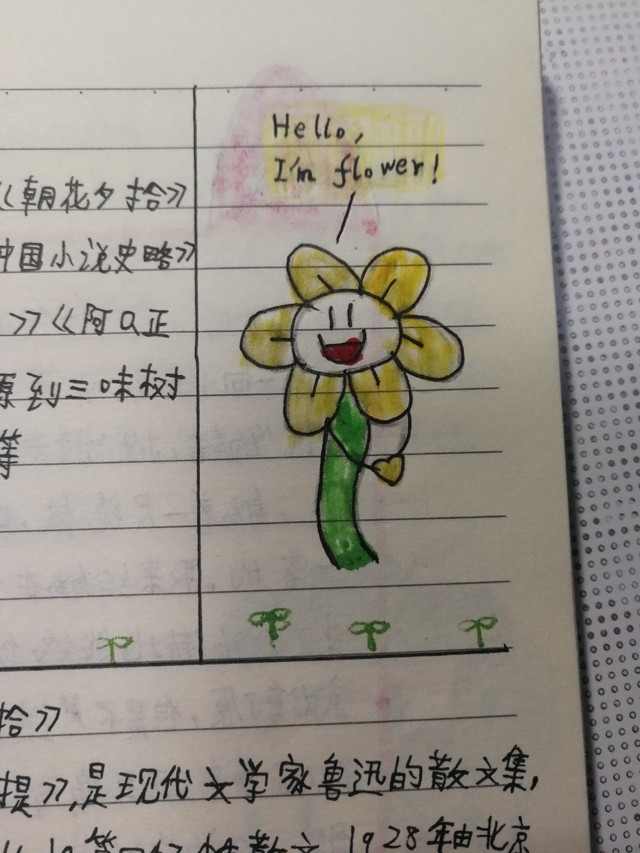 Hello,
I'm flower!
《朝花夕拾》
中国小说史略》
》《阿Q正
原到三味树
等
拾》
提》,是现代文学家鲁迅的散文集,
散文 1928年由北京